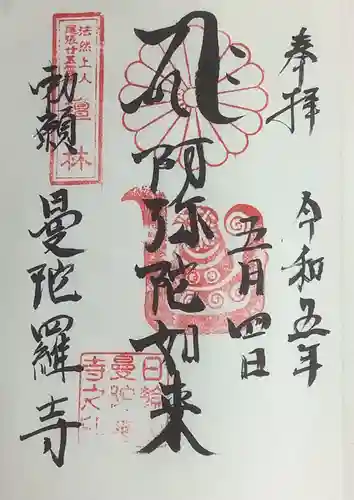 奉拝
令和五年
五月四日
阿弥陀如来
勅願 曼陀羅寺
法然上人
尾張廿五
檀林
日輪
曼陀
寺之印